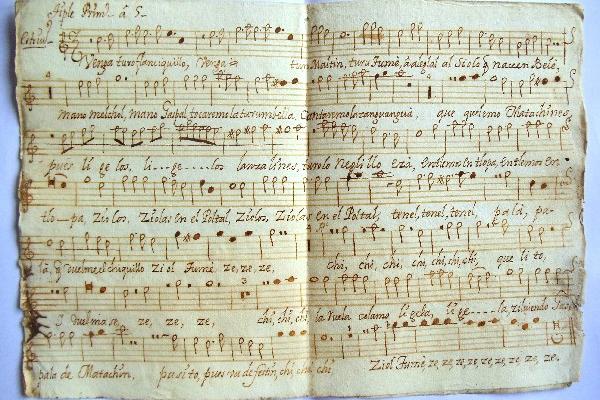 Tiple Primo. â 5.
Venga turo flanciquillo, Venga turu Maitin, turu Fumè, â aleglal al Siolo q̃ nace en Belè,
mano melchol, mano Gaspal tocaremo la turumbella, Cantaremo la zanguangua, que queremo Matachines
pues lige los, li-ge----los lanza lines, turo lo Neglillo Eza, Entlemo en tlopa, Entlemos en
tlo-pa, Ziolos, Ziolas en el Poltal, Ziolos, Ziolas en el Poltal, tenel, tenel, tenel, pala, pa-
la, y duelme el chiquillo Ziol Fumè ze, ze, ze, chi, chi, chi, chi, chi, chi, chi, que lito,
y duelma se, ze, ze, ze, chi, chi, chi la Vuela velamo ligela, li ge-----la,
pala de Matachin, pasito, pues chi, chi, chi Ziol Fumè, ze, ze, ze, ze, ze, ze, ze, ze.